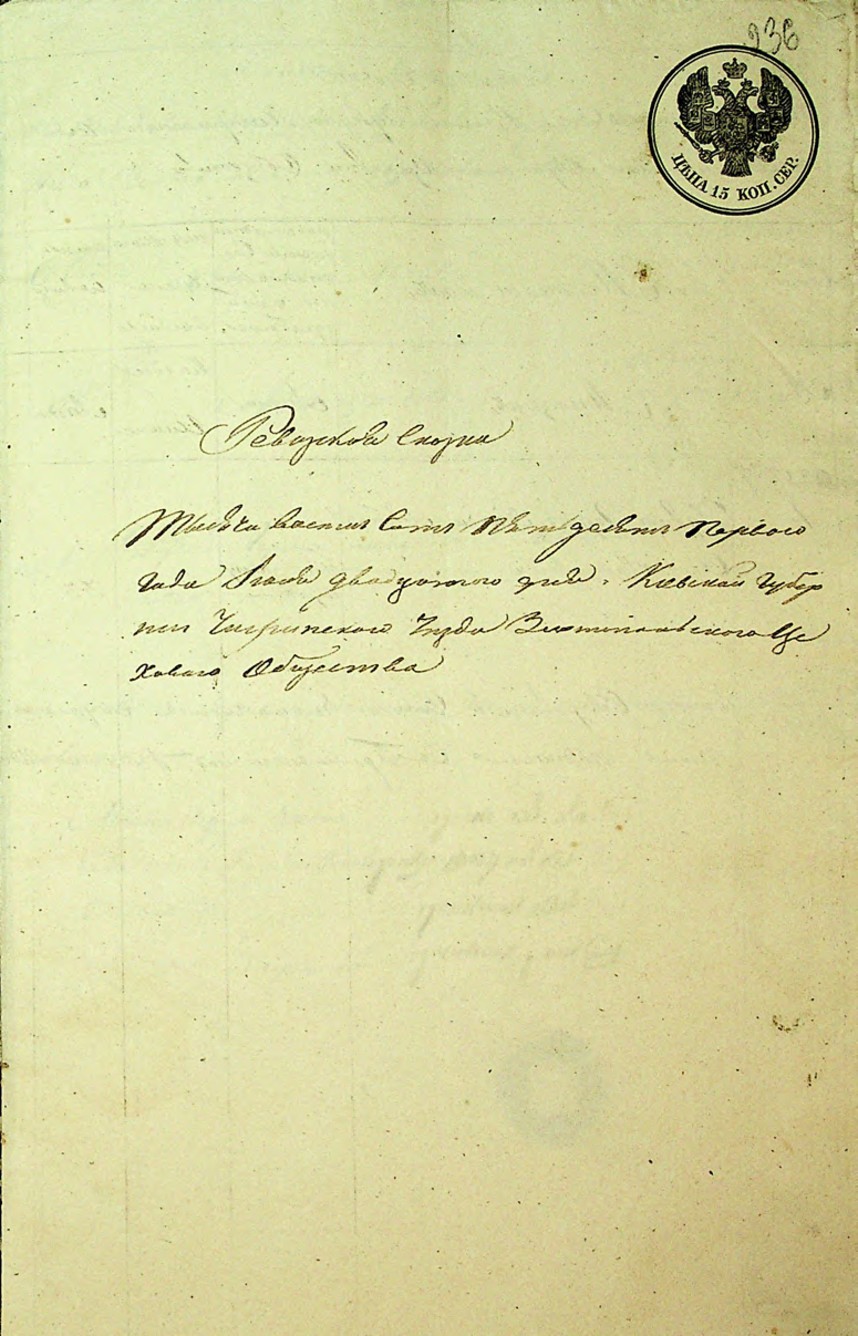 236
ЦѢНА 15 КОП. СЕР.
Ревизская Сказка
Тысяча восемь Сотъ Пятьдесятъ Первого
года двадцатого дня. Кіевской Губер
ніи Чигиринского Уезда Златопольского Це
хового Общества